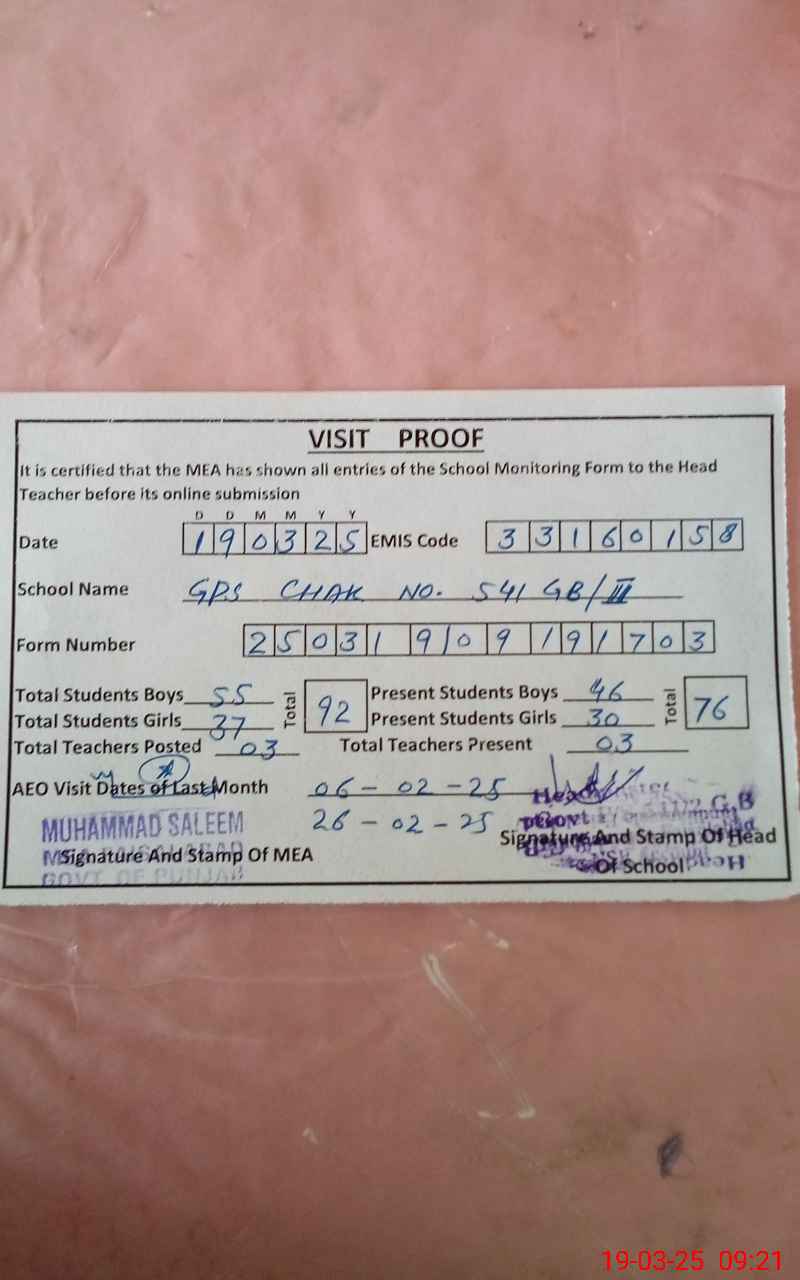 VISIT PROOF
It is certified that the MEA has shown all entries of the School Monitoring Form to the Head
Teacher before its online submission
D D M M Y Y
Date 190325 EMIS Code 33160158
School Name GPS CHAK NO. 541 GB/III
Form Number 25031909191703
Total Students Boys 55 Total 92 Present Students Boys 46 Total 76
Total Students Girls 37 Present Students Girls 30
Total Teachers Posted 03 Total Teachers Present 03
AEO Visit Dates of Last Month 06-02-25
26-02-25
MUHAMMAD SALEEM
Signature And Stamp Of MEA
GOVT OF PUNJAB
Signature And Stamp Of Head
Of School
19-03-25 09:21